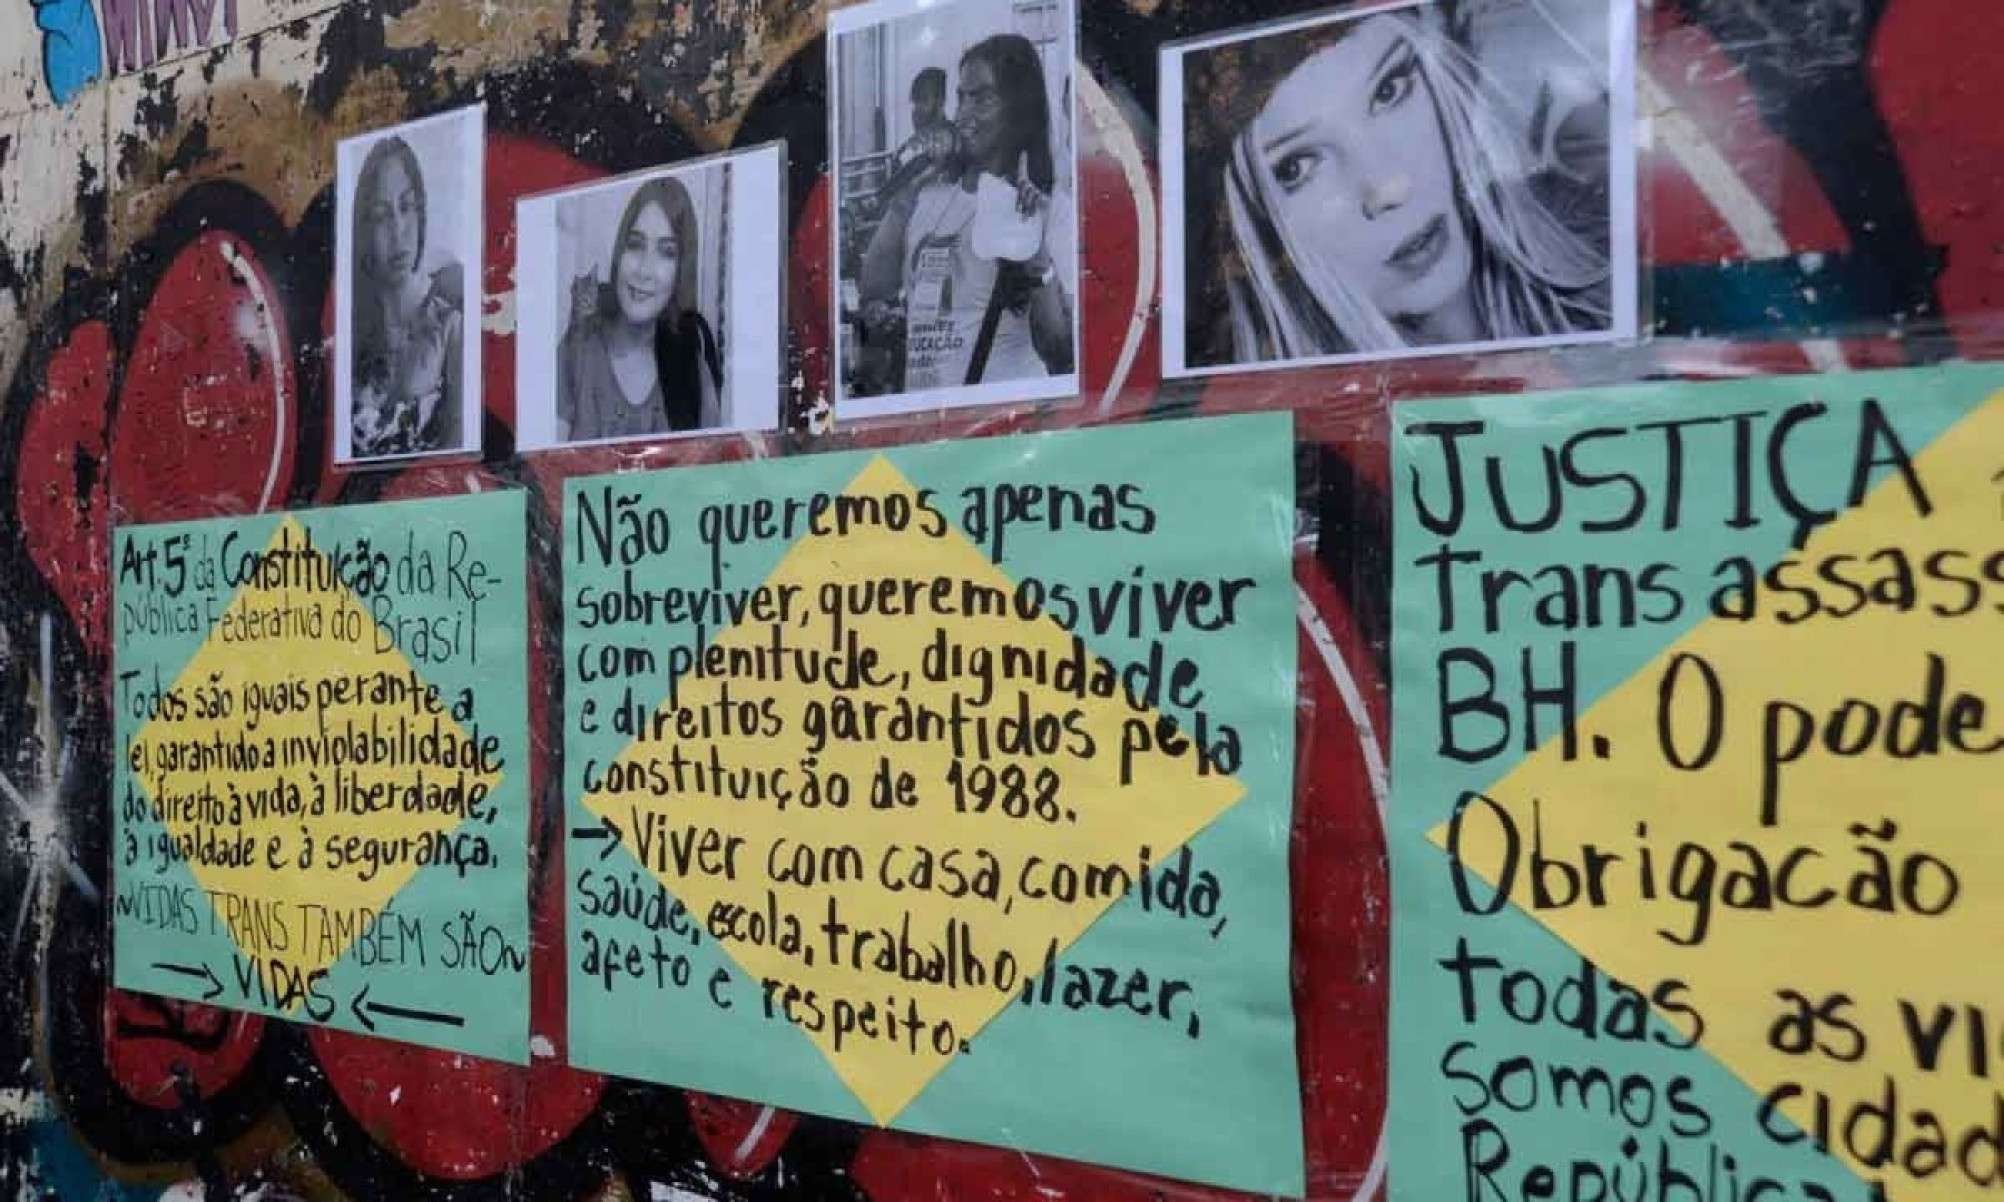 UCAÇÃO
Art. 5º da Constituição da Re-
pública Federativa do Brasil
Todos são iguais perante a
lei, garantido a inviolabilidade
do direito à vida, à liberdade,
à igualdade e à segurança.
~VIDAS TRANS TAMBÉM SÃO~
→ VIDAS ←
Não queremos apenas
sobreviver, queremos viver
com plenitude, dignidade
e direitos garantidos pela
constituição de 1988.
→ Viver com casa, comida,
saúde, escola, trabalho, lazer,
afeto e respeito.
JUSTIÇA
Trans assass
BH. O pode
Obrigacão
todas as vi
somos cidad
República